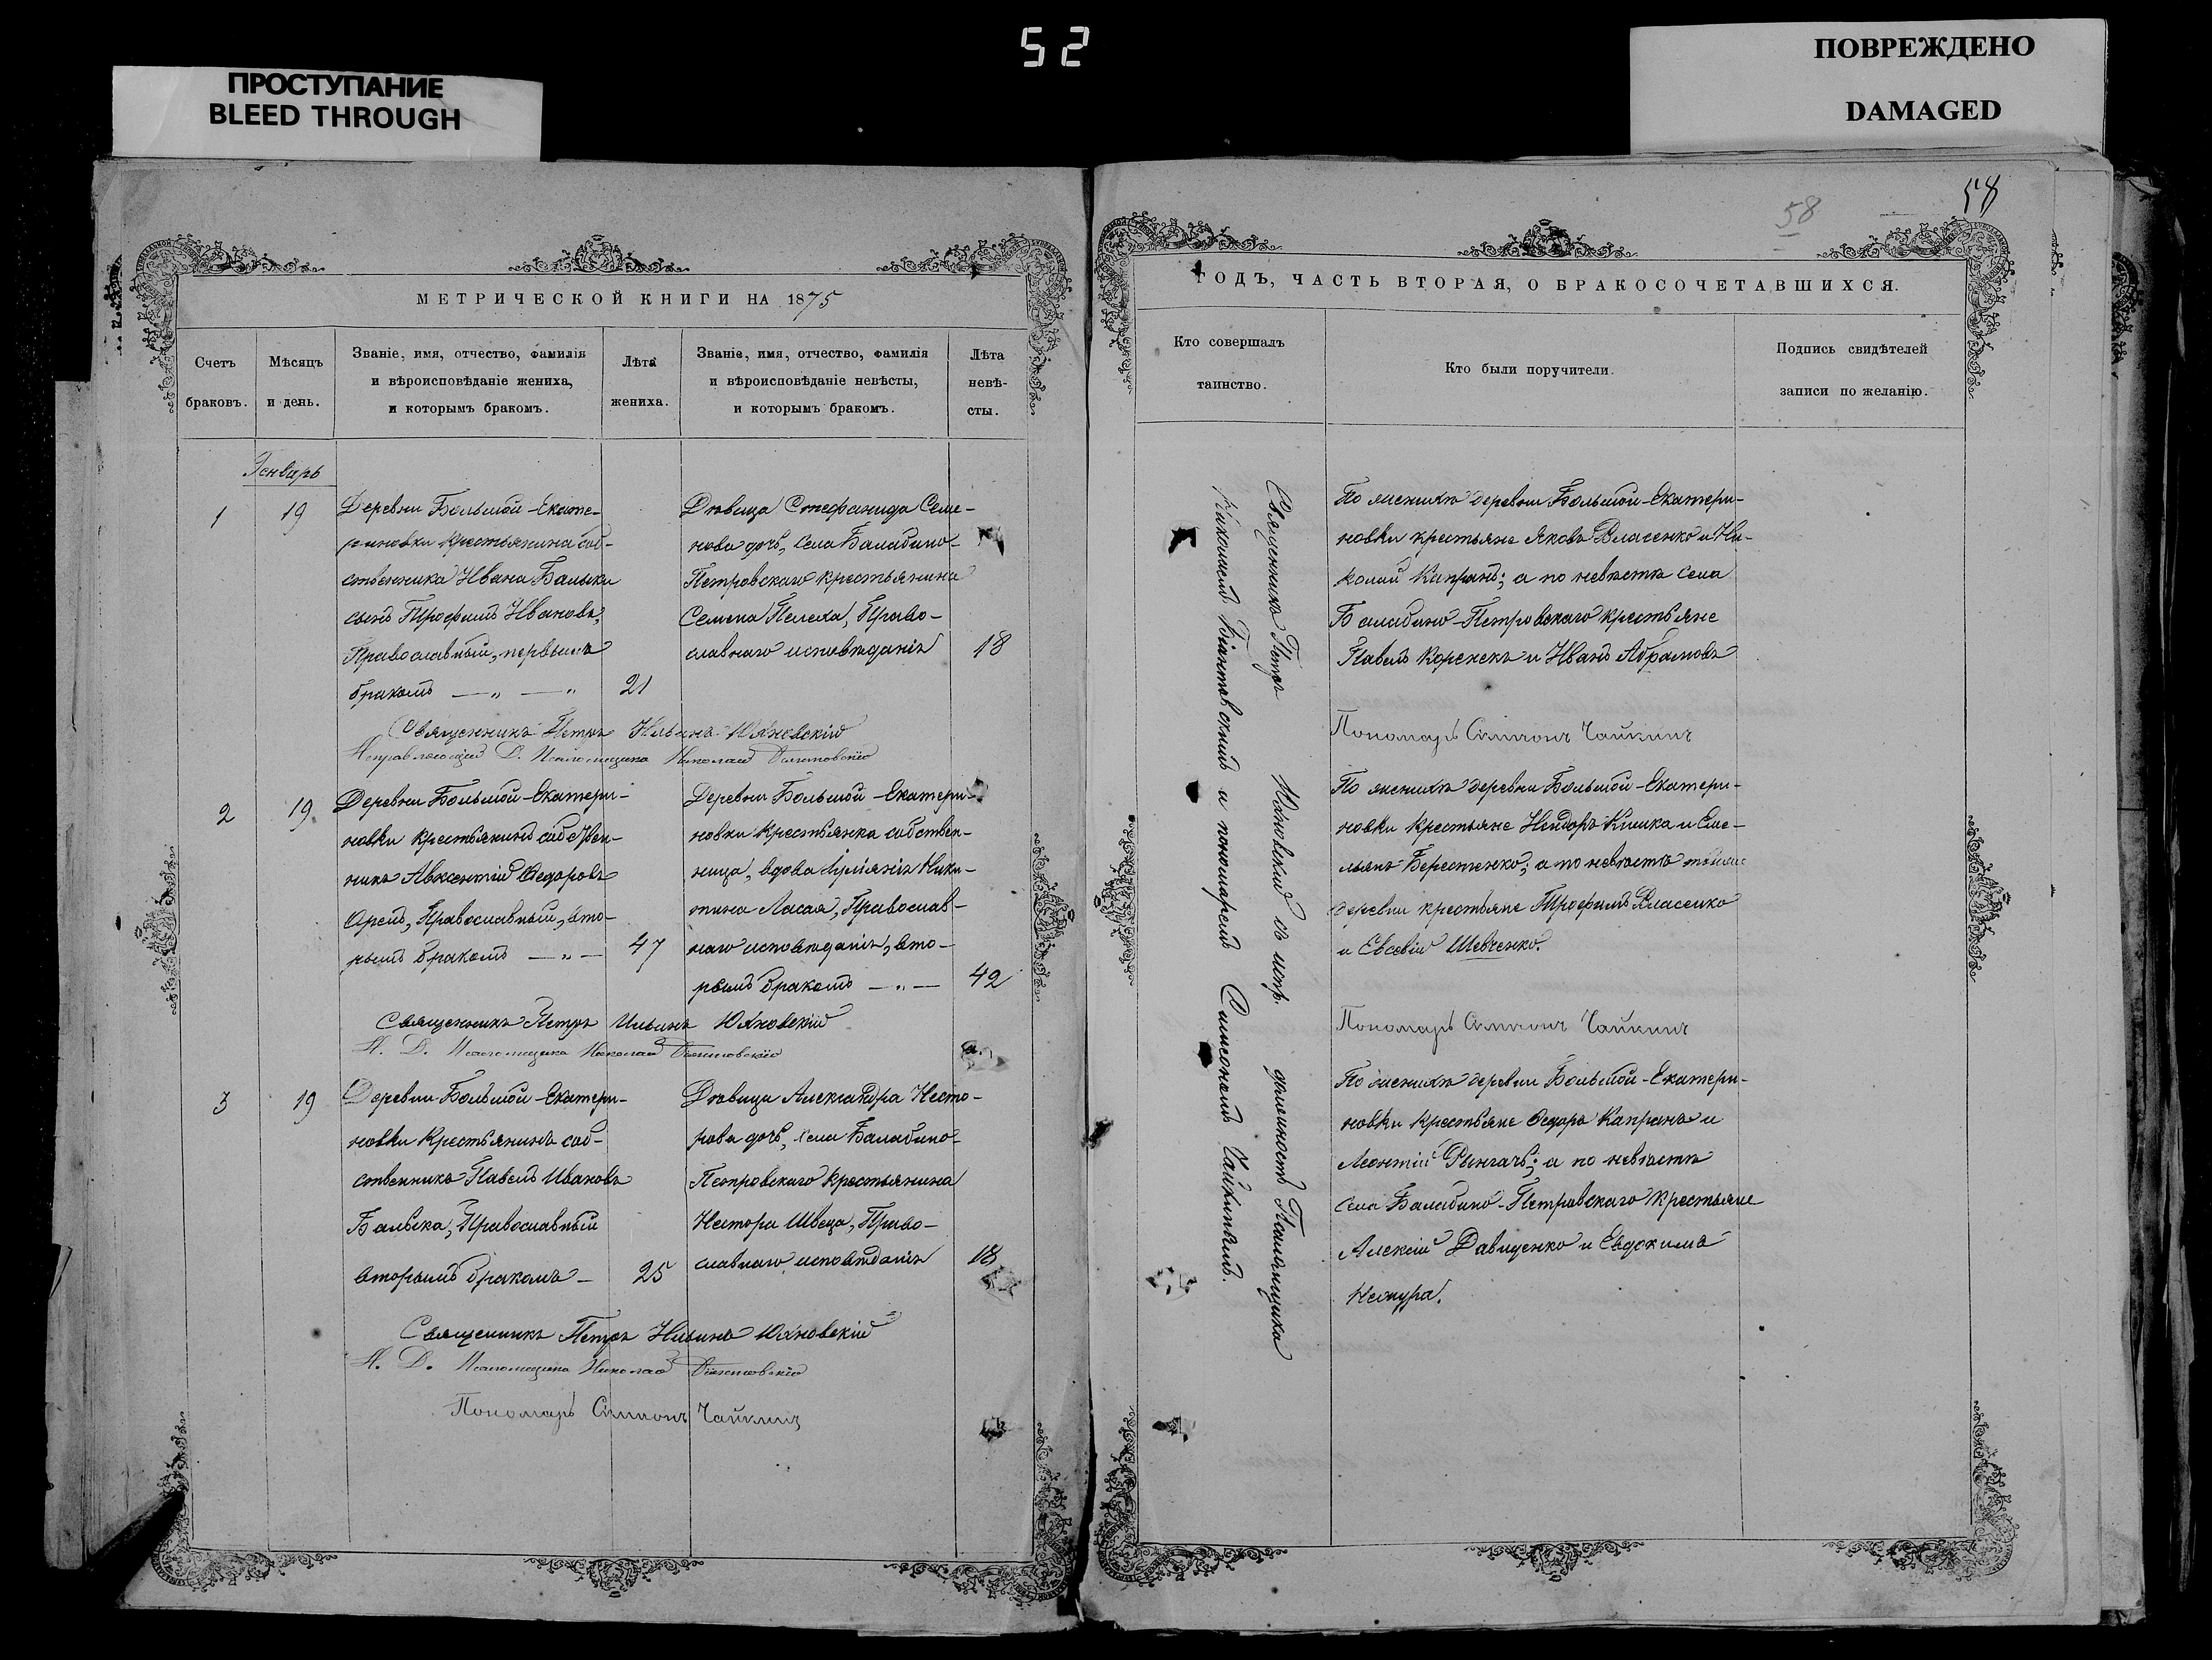 52
ПРОСТУПАНИЕ
BLEED THROUGH
ПОВРЕЖДЕНО
DAMAGED
58
58
МЕТРИЧЕСКОЙ КНИГИ НА 1875
Счетъ
браковъ.
Мѣсяцъ
и день.
Званіе, имя, отчество, фамилія
и вѣроисповѣданіе жениха,
и которымъ бракомъ.
Лѣта
жениха.
Званіе, имя, отчество, фамилія
и вѣроисповѣданіе невѣсты,
и которымъ бракомъ.
Лѣта
невѣ-
сты.
Январь
1
19
Деревни Большой-Екате-
риновки крестьянина соб-
ственника Ивана Балыки
сынъ Трофимъ Ивановъ,
Православный, первымъ
бракомъ — „ — „
21
Дѣвица Стефанида Семе-
нова дочь, села Балабино-
Петровскаго крестьянина
Семена Пелеха, Право-
славнаго исповѣданія
18
Священникъ Петръ Ильинъ Юхновскій
Исправляющій Д. Псаломщика Николай
2
19
Деревни Большой-Екатери-
новки крестьянинъ собствен-
никъ Авксентій Федоровъ
Православный, вто-
рымъ бракомъ — „ —
47
Деревни Большой-Екатери-
новки крестьянка собствен-
ница, вдова Ники-
Ласая, Православ-
наго исповѣданія, вто-
рымъ бракомъ — „ —
42
Священникъ Петръ Ильинъ Юхновскій
И. Д. Псаломщика Николай
3
19
Деревни Большой-Екатери-
новки крестьянинъ соб-
ственникъ Павелъ Ивановъ
Балыка, Православный
вторымъ бракомъ —
25
Дѣвица Александра Несто-
рова дочь, села Балабино-
Петровскаго крестьянина
Нестора Швеца, Право-
славнаго исповѣданія
18
Священникъ Петръ Ильинъ Юхновскій
И. Д. Псаломщика Николай
Пономарь Симеонъ Чайкинъ
ГОДЪ, ЧАСТЬ ВТОРАЯ, О БРАКОСОЧЕТАВШИХСЯ.
Кто совершалъ
таинство.
Кто были поручители.
Подпись свидѣтелей
записи по желанію.
Священникъ Петръ Юхновскій съ испр. должность Псаломщика
Николаемъ и пономаремъ Симеономъ Чайкинымъ.
По женихѣ деревни Большой-Екатери-
новки крестьяне Яковъ Власенко и Ни-
колай Капранъ; а по невѣстѣ села
Балабино-Петровскаго крестьяне
Павелъ и Иванъ Абрамовъ
Пономарь Симеонъ Чайкинъ
По женихѣ деревни Большой-Екатери-
новки крестьяне и Еме-
льянъ Берестенко; а по невѣстѣ тойже
деревни крестьяне Трофимъ Власенко
и Евсевій Шевченко.
Пономарь Симеонъ Чайкинъ
По женихѣ деревни Большой-Екатери-
новки крестьяне Федоръ Капранъ и
Леонтій а по невѣстѣ
села Балабино-Петровскаго крестьяне
Алексій Давиденко и Евдокимъ